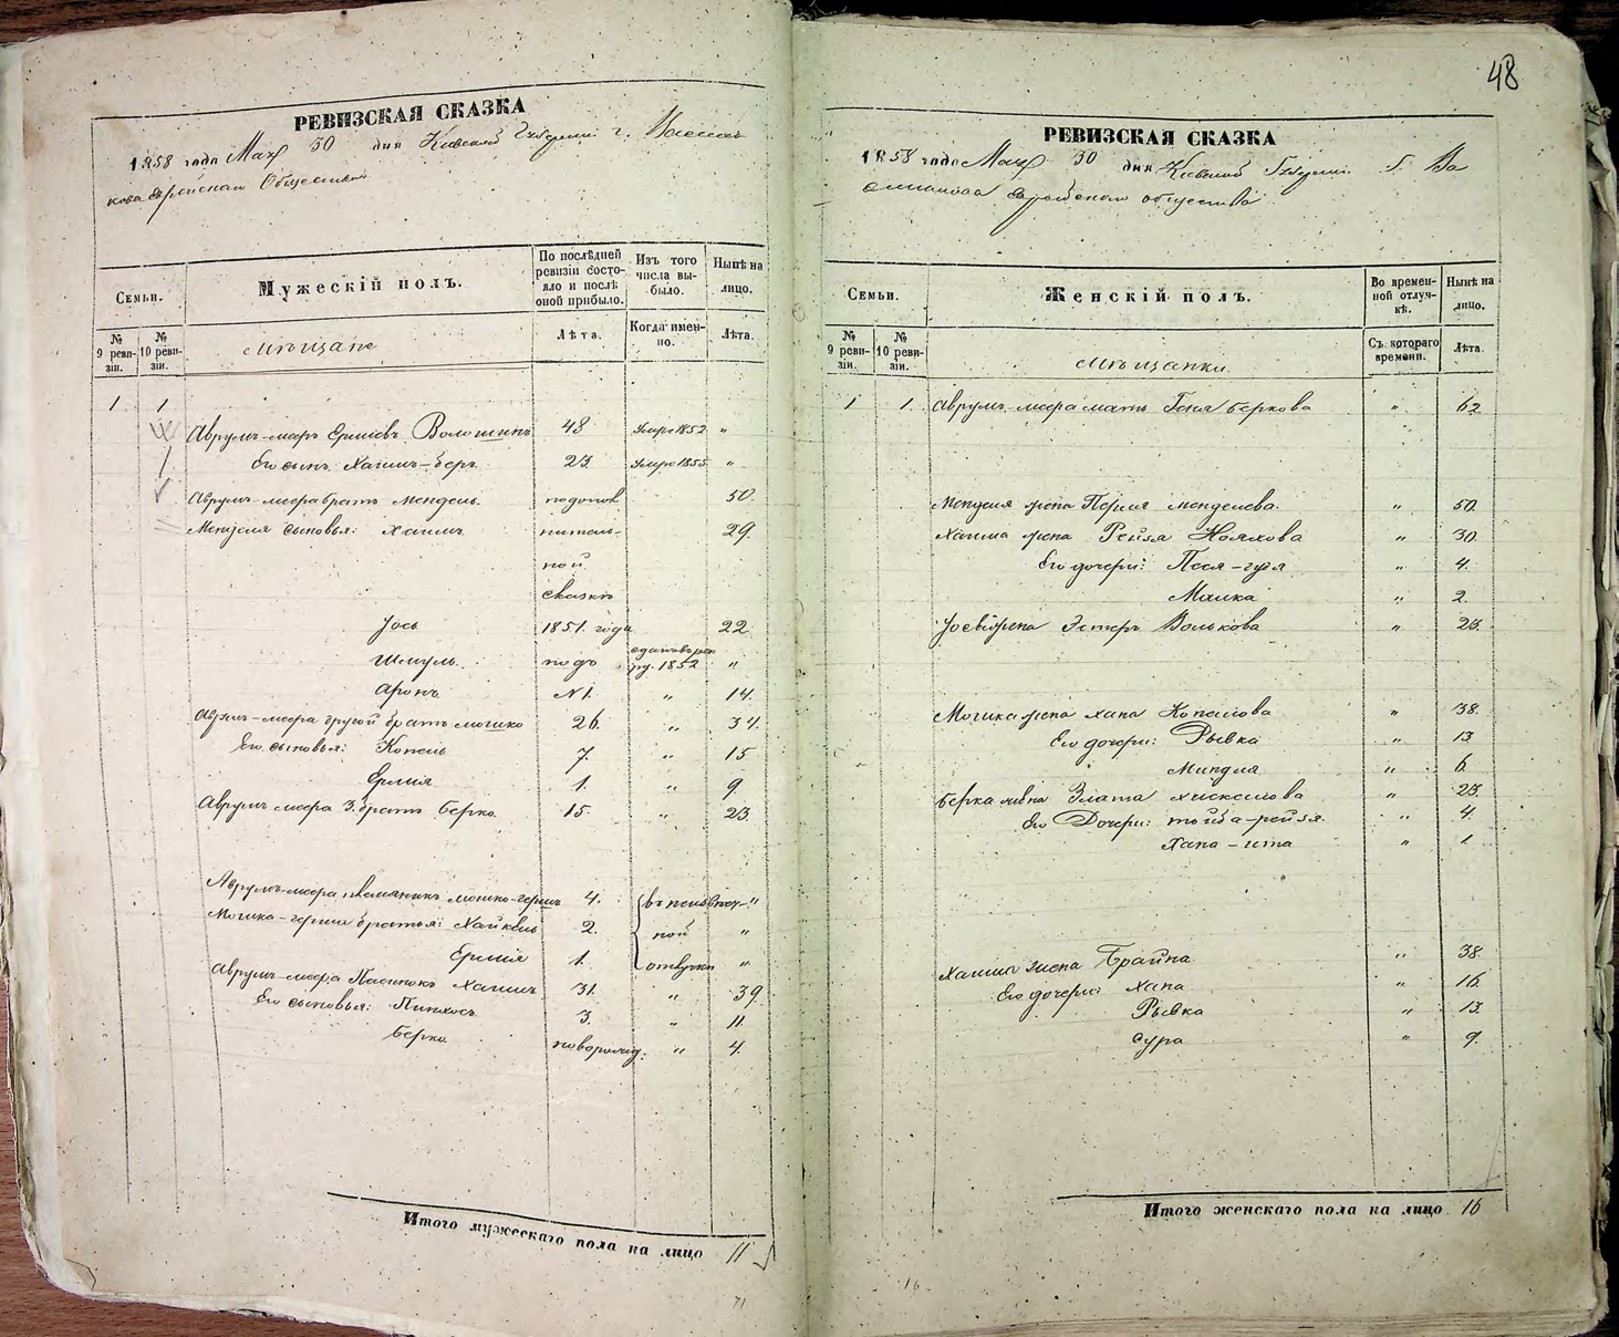 48
РЕВИЗСКАЯ СКАЗКА
1858 года Мая 30 дня Киевской Губерніи г. Василь
кова Еврейскаго Общества
Семьи.
Мужескій полъ.
По послѣдней ревизіи состояло и послѣ оной прибыло.
Изъ того числа выбыло.
Нынѣ на лицо.
№ 9 ревизіи.
№ 10 ревизіи.
Мѣщане
Лѣта.
Когда именно.
Лѣта.
1 1
Аврумъ-мееръ Ершовъ Волошинъ 48 Умре 1852 "
Его сынъ Хаимъ-беръ 23 Умре 1855 "
Аврумъ-меера братъ Мендель по допол 50.
Менделя сыновья: Хаимъ нитель- 29.
ной
сказкѣ
Іось 1851 года 22
Шмуль подъ ру. 1852 "
Аронъ №1. " 14.
Аврумъ-меера другой братъ мошко 26. " 34.
Его сыновья: Копель 7. " 15
Ершія 1. " 9
Аврумъ меера 3. братъ Берко 15. " 23.
Аврумъ-меера племянникъ мошко-гершъ 4. въ неизвѣст- "
Мошка-герша братья: Хайкель 2. ной "
Ершія 1. отлучкѣ "
Аврумъ-меера Пасынокъ Хаимъ 31. " 39.
Его сыновья: Пинхосъ 3. " 11.
Берко новорожд: " 4.
Итого мужескаго пола на лицо 11
РЕВИЗСКАЯ СКАЗКА
1858 года Мая 30 дня Киевской Губерніи г. Ва
силькова Еврейскаго общества
Семьи.
Женскій полъ.
Во временной отлучкѣ.
Нынѣ на лицо.
№ 9 ревизіи.
№ 10 ревизіи.
Мѣщанки
Съ котораго времени.
Лѣта.
1 1. Аврумъ-меера мать Геня Беркова " 62
Менделя жена Перля менделева. " 50.
Хаима жена Рейзя Нояхова " 30
Его дочери: Песя-гугя " 4.
Малка " 2.
Іосвіожена Эстеръ Волькова " 23.
Мошка жена хана Копелова " 38.
Его дочери: Рывка " 13
Миндля " 6
Берка жена Злата хискелова " 23.
Его Дочери: тойба-рейзя " 4.
Хана-ита " 1
Хаима жена Брайна " 38
Его дочери: хана " 16.
Рывка " 13.
Сура " 9.
Итого женскаго пола на лицо 16
71
16